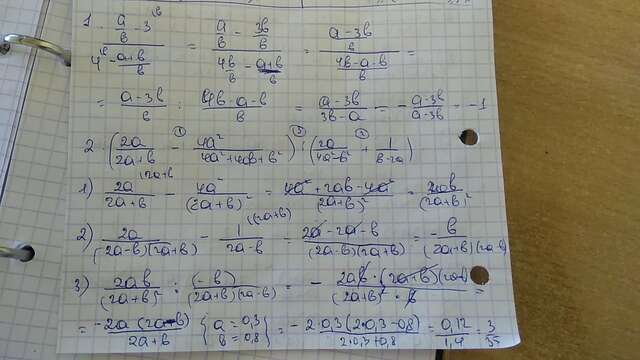 1. (a/b - 3^(b)) / (4^(b) - (a+b)/b) = (a/b - 3b/b) / (4b/b - (a+b)/b) = ((a-3b)/b) / ((4b-a-b)/b) =
= (a-3b)/b : (4b-a-b)/b = (a-3b)/(3b-a) = - (a-3b)/(a-3b) = -1
2. (2a/(2a+b) -^① 4a²/(4a²+4ab+b²)) :^③ (2a/(4a²-b²) +^② 1/(b-2a))
1) 2a^(2a+b)/(2a+b) - 4a²/(2a+b)² = (4a²+2ab-4a²)/(2a+b)² = 2ab/(2a+b)²
2) 2a/((2a-b)(2a+b)) - 1^((2a+b))/(2a-b) = (2a-2a-b)/((2a-b)(2a+b)) = -b/((2a+b)(2a-b))
3) 2ab/(2a+b)² : (-b)/((2a+b)(2a-b)) = - (2ab·(2a+b)(2a-b))/((2a+b)²·b) =
= -2a(2a-b)/(2a+b) { a=0,3 b=0,8 } = - 2·0,3(2·0,3-0,8)/(2·0,3+0,8) = 0,12/1,4 = 3/35